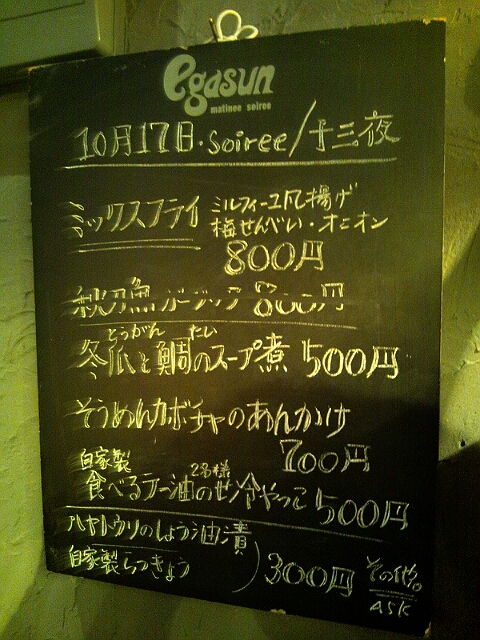 egasun
matinee soiree
10月17日・Soiree/十三夜
ミックスフライ ミルフィーユ風揚げ
梅せんべい・オニオン
800円
秋刀魚ガーリック 800円
とうがん たい
冬瓜と鯛のスープ煮 500円
そうめんカボチャのあんかけ
700円
自家製 2名様
食べるラー油のせ冷やっこ 500円
ハヤトウリのしょう油漬
自家製らっきょう 300円 その他。
ASK